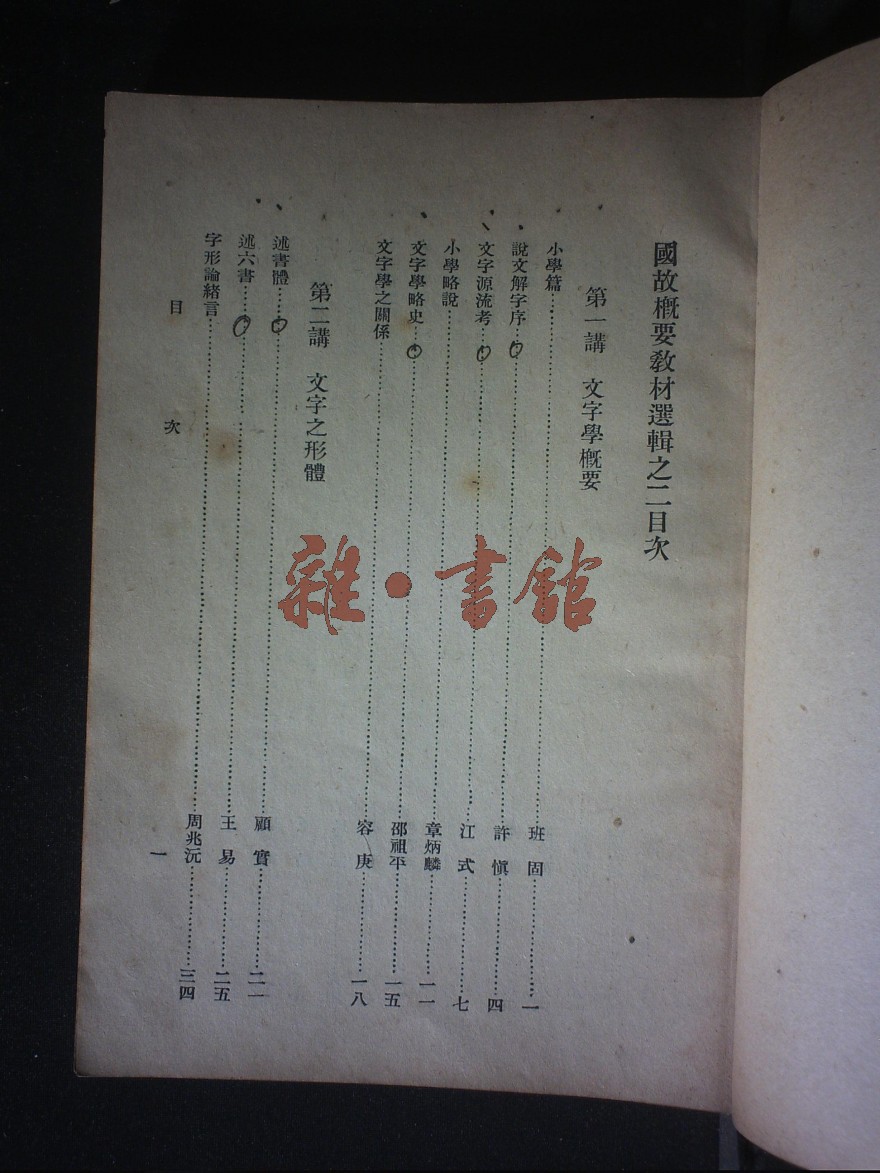 國故概要教材選輯之二目次
第一講 文字學概要
小學篇…………班固…………一
說文解字序…………許愼…………四
文字源流考…………江式…………七
小學略說…………章炳麟…………一一
文字學略史…………邵祖平…………一五
文字學之關係…………容庚…………一八
第二講 文字之形體
述書體…………顧實…………二一
述六書…………王易…………二五
字形論緒言…………周兆沅…………三四
目次
一
雜·書館